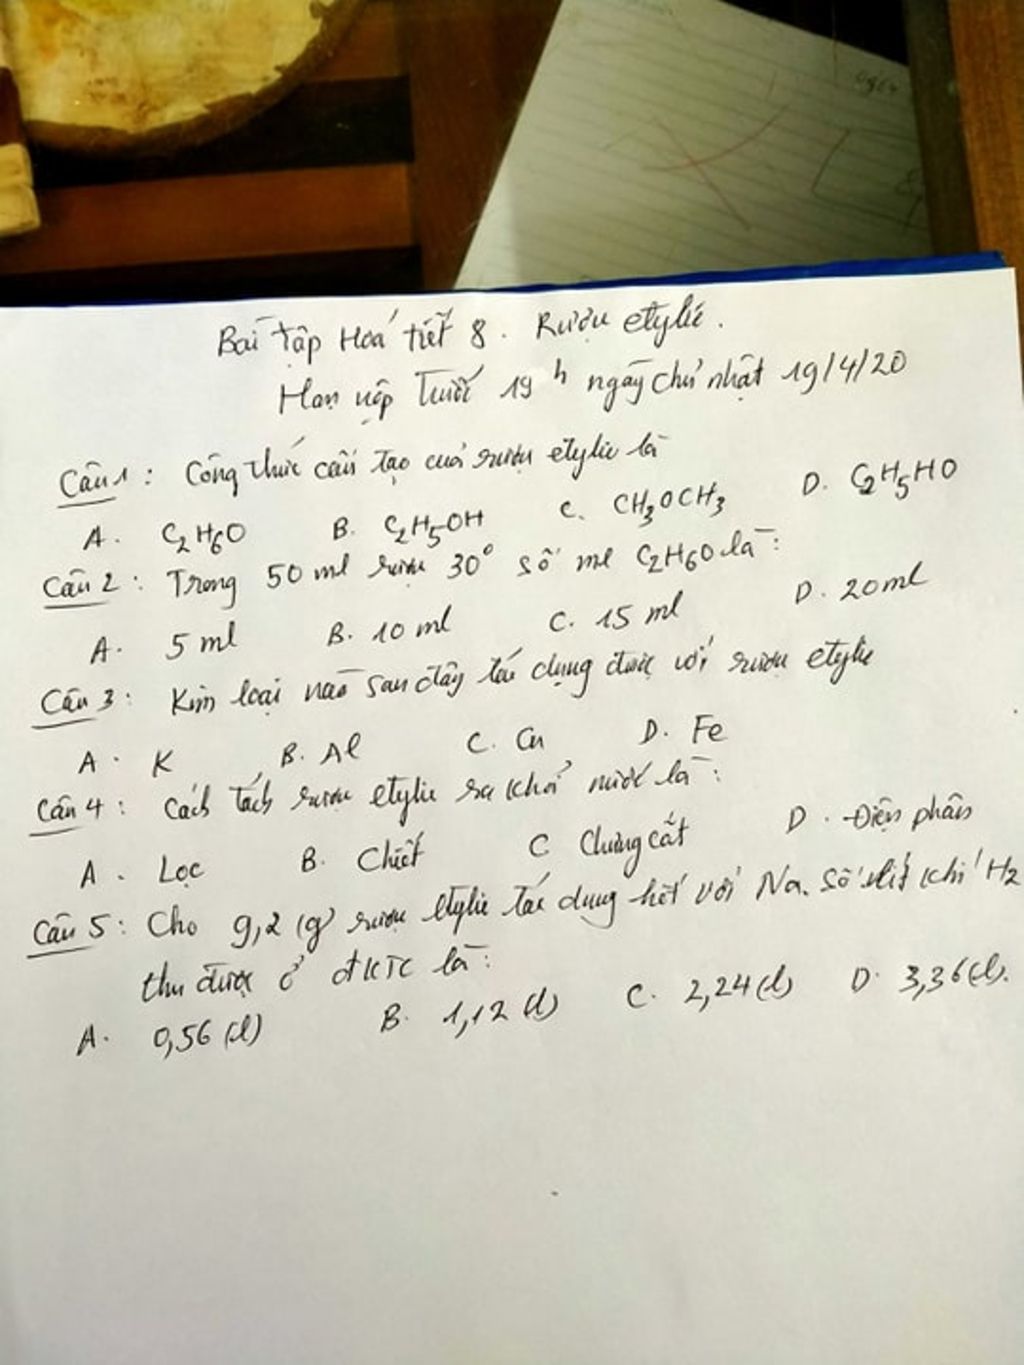 Bài tập Hoá tiết 8. Rượu etylic.
Hạn nộp trước 19h ngày chủ nhật 19/4/20
Câu 1: Công thức cấu tạo của rượu etylic là
A. C₂H₆O B. C₂H₅OH C. CH₃OCH₃ D. C₂H₅HO
Câu 2: Trong 50 ml rượu 30° số ml C₂H₆O là:
A. 5 ml B. 10 ml C. 15 ml D. 20 ml
Câu 3: Kim loại nào sau đây tác dụng được với rượu etylic
A. K B. Al C. Cu D. Fe
Câu 4: Cách tách rượu etylic ra khỏi nước là:
A. Lọc B. Chiết C Chưng cất D. Điện phân
Câu 5: Cho 9,2 (g) rượu etylic tác dụng hết với Na. Số lít khí H₂
thu được ở đktc là:
A. 0,56 (l) B. 1,12 (l) C. 2,24 (l) D. 3,36 (l).